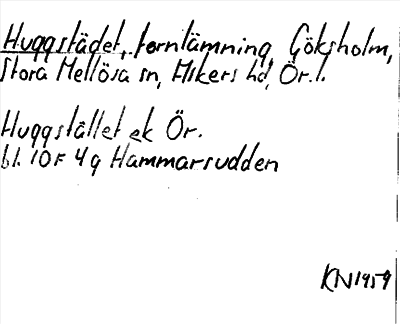 Huggstädet, fornlämning Göksholm,
Stora Mellösa sn, Askers hd, Ör. l.
Huggstället ek Ör.
bl. 10F 4g Hammarsudden
KN1959